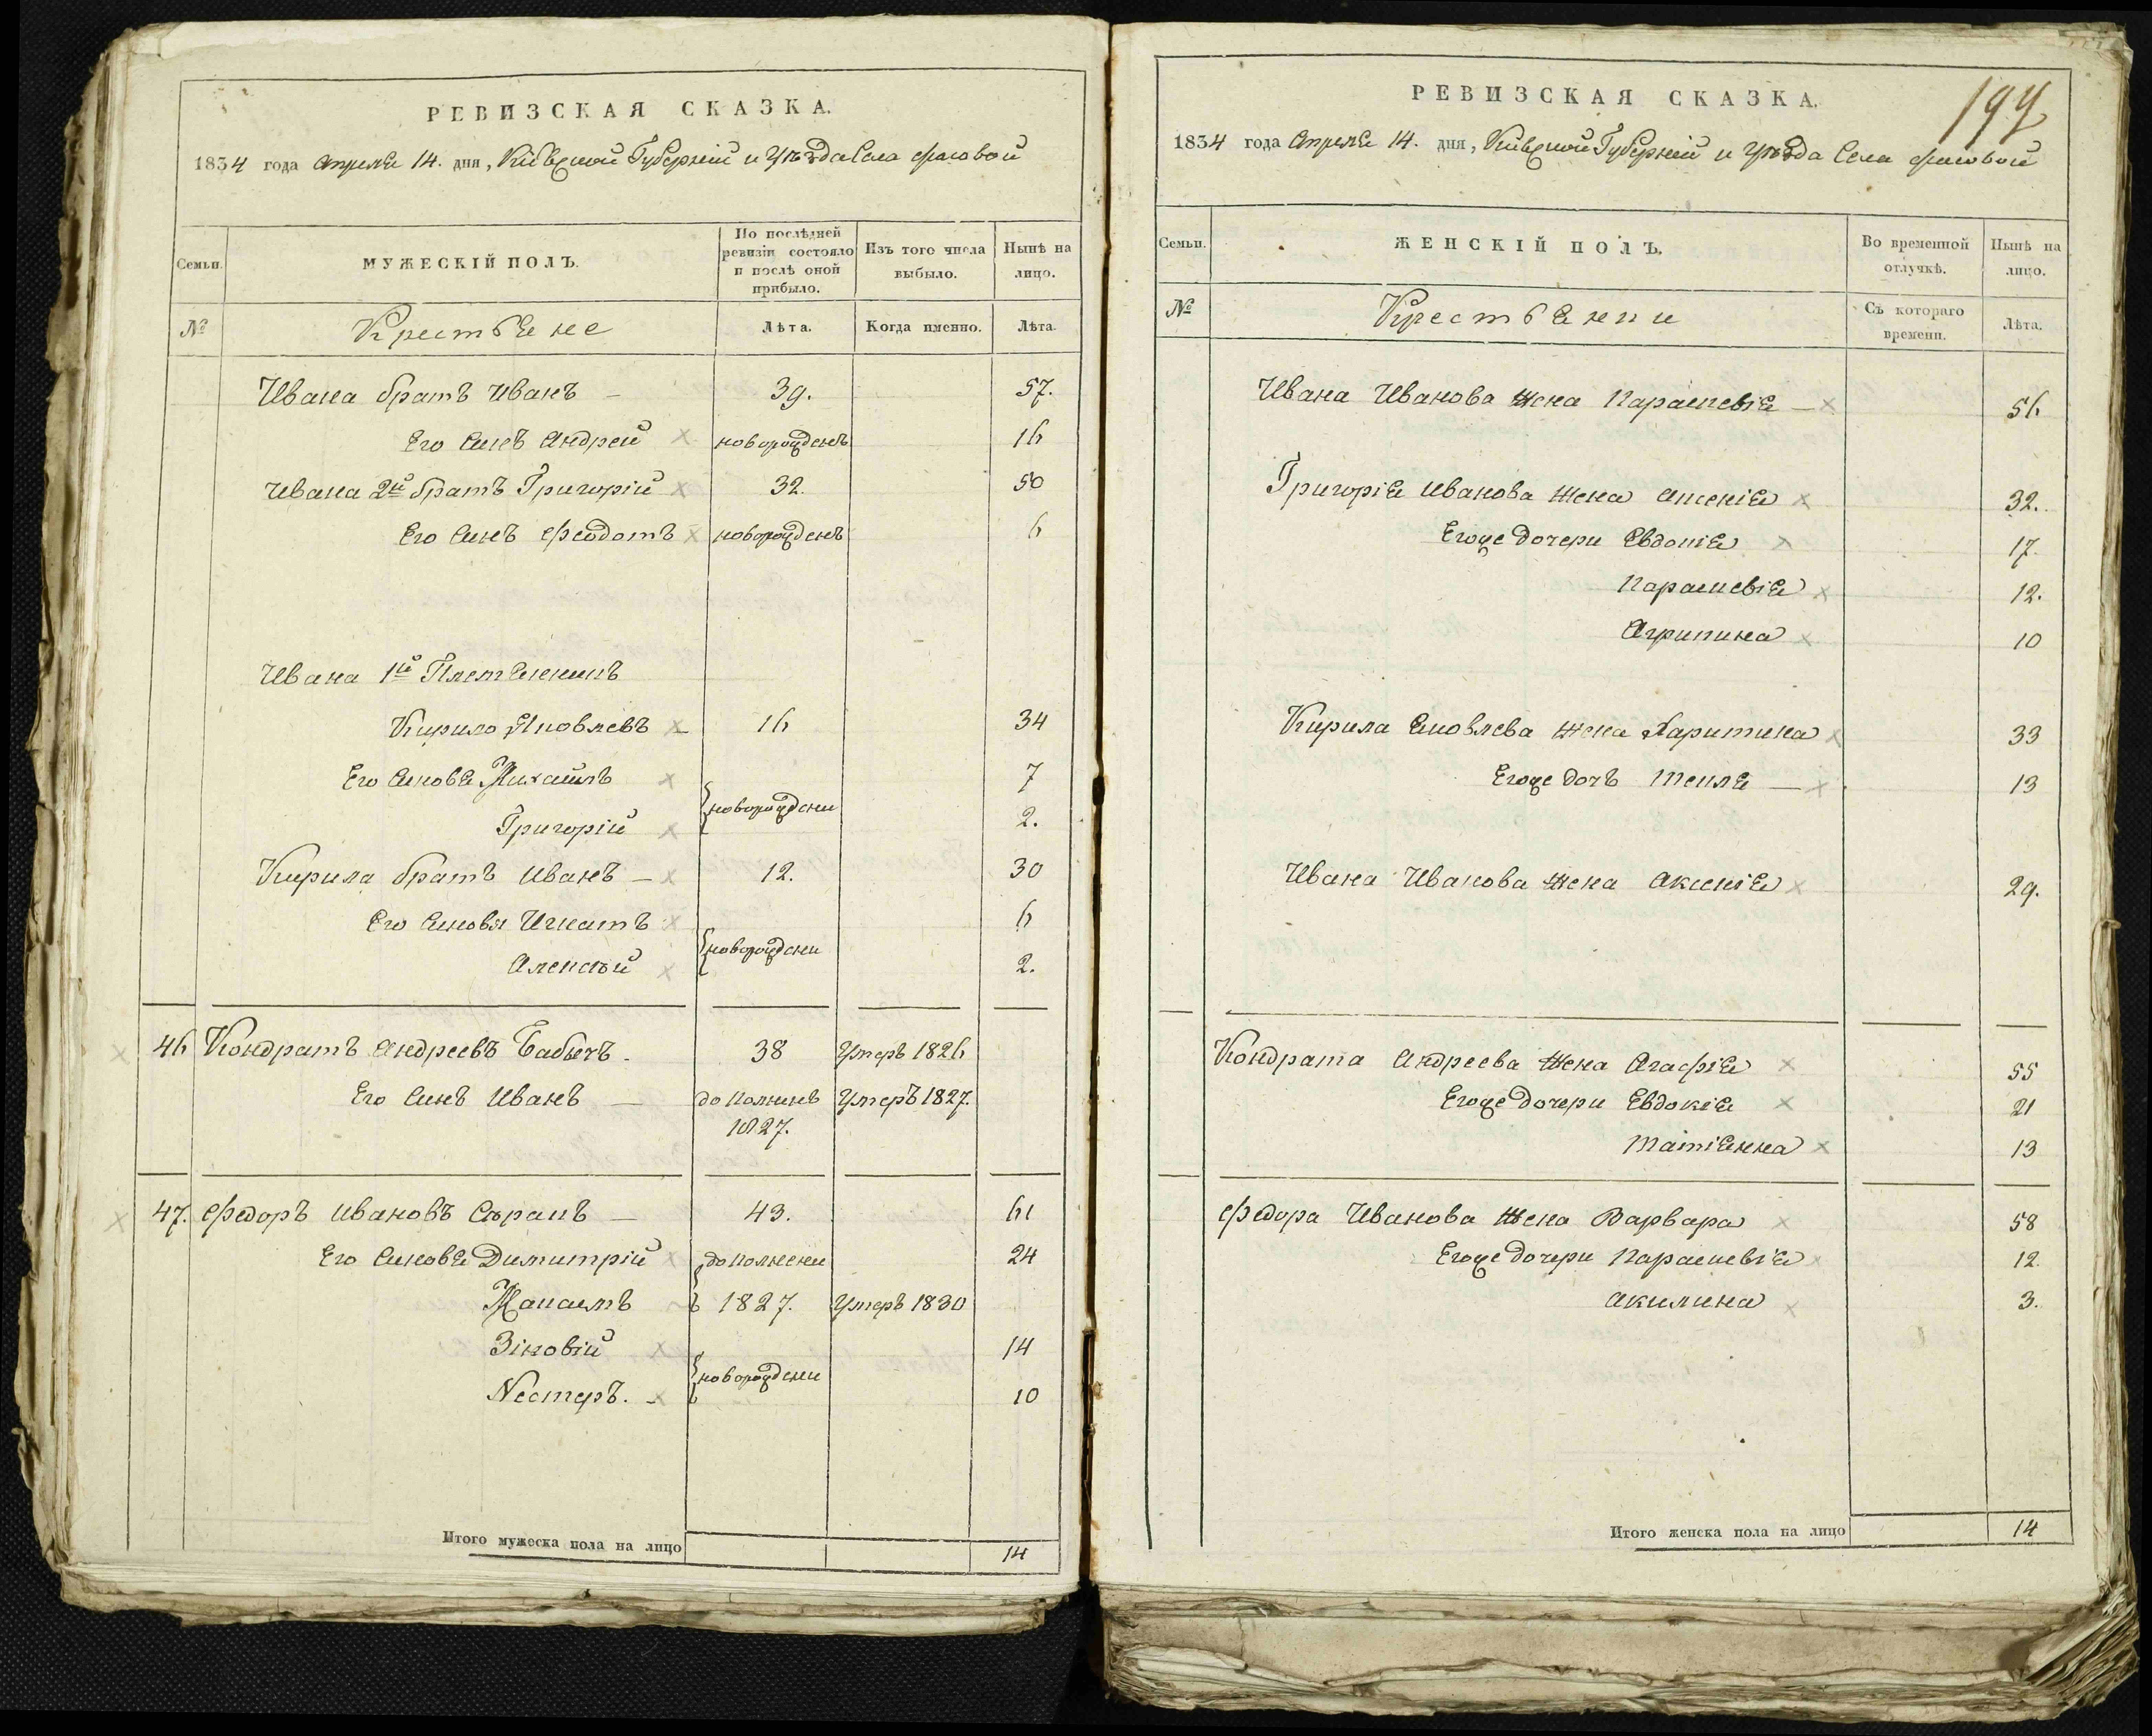 РЕВИЗСКАЯ СКАЗКА.
1834 года Апреля 14. дня, Киевской Губерній и уѣзда Села Фасовой
Семьи. МУЖЕСКІЙ ПОЛЪ. По послѣдней ревизіи состояло и послѣ оной прибыло. Изъ того числа выбыло. Нынѣ на лицо.
№ Крестьяне Лѣта. Когда именно. Лѣта.
Ивана братъ Иванъ – 39. 57.
Его Синъ Андрей новорожденъ 16
Ивана 2й братъ Григорій 32. 50
Его Синъ Феодотъ новорожденъ 6
Ивана 1й Племянникъ
Кирило Яковлевъ 16 34
Его Синовя Михаилъ новорождени 7
Григорій 2.
Кирила братъ Иванъ – 12. 30
Его Синовя Игнатъ новорождени 6
Алексѣй 2.
46 Кондратъ Андреевъ Бабичъ. 38 Умеръ 1826
Его Синъ Иванъ – дополненъ 1827. Умеръ 1827.
47. Федоръ Ивановъ – 43. 61
Его Синовя Димитрій дополнени 24
1827. Умеръ 1830
Зіновій новорождени 14
Нестеръ. 10
Итого мужеска пола на лицо 14
РЕВИЗСКАЯ СКАЗКА.
1834 года Апреля 14. дня, Киевской Губерній и уѣзда Села Фасовой
Семьи. ЖЕНСКІЙ ПОЛЪ. Во временной отлучкѣ. Нынѣ на лицо.
№ Крестьянки Съ котораго времени. Лѣта.
Ивана Иванова жена Параскевія – 56
Григорія Иванова жена Аксенія 32.
Егоже дочери Евдокія 17.
Параскевія 12.
Агрипина 10
Кирила Яковлева жена Харитина 33
Егоже дочъ Текля – 13
Ивана Иванова жена Аксенія 29.
Кондрата Андреева жена Агафія 55
Егоже дочери Евдокія 21
Татіянна 13
Федора Иванова жена Варвара 58
Егоже дочери Параскевія 12.
Акилина 3.
Итого женска пола на лицо 14